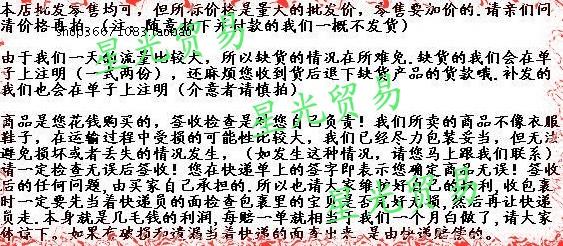 本店批发零售均可，但所标价格是量大的批发价，零售要加价的.请亲们问
清价格再拍.（注：随意拍下并付款的我们一概不发货）
shop36671083.taobao
由于我们一天的流量比较大，所以缺货的情况在所难免.缺货的我们会在单
子上注明（一式两份），还麻烦您收到货后退下缺货产品的货款哦.补发的
我们也会在单子上注明（介意者请慎拍）
商品是您花钱购买的，签收检查是对您自己负责！我们所卖的商品不像衣服
鞋子，在运输过程中受损的可能性比较大，我们已经尽力包装妥当，但无法
避免损坏或者丢失的情况发生，（如发生这种情况，请您马上跟我们联系）
请一定检查无误后签收！您在快递单上的签字即表示您确定商品无误！签收
后的任何问题,由买家自己承担的.所以也请大家维护好自己的权利,收包裹
时一定要先当着快递员的面检查包裹里的宝贝是否完好无损,然后再让快递
员走.本身就是几毛钱的利润,每赔一单就相当于我们一个月白做了,请大家
体谅下。如果有破损和遗漏当着快递的面查出来 是由快递赔偿的。
星光贸易
星光贸易
星光贸易
星光贸易